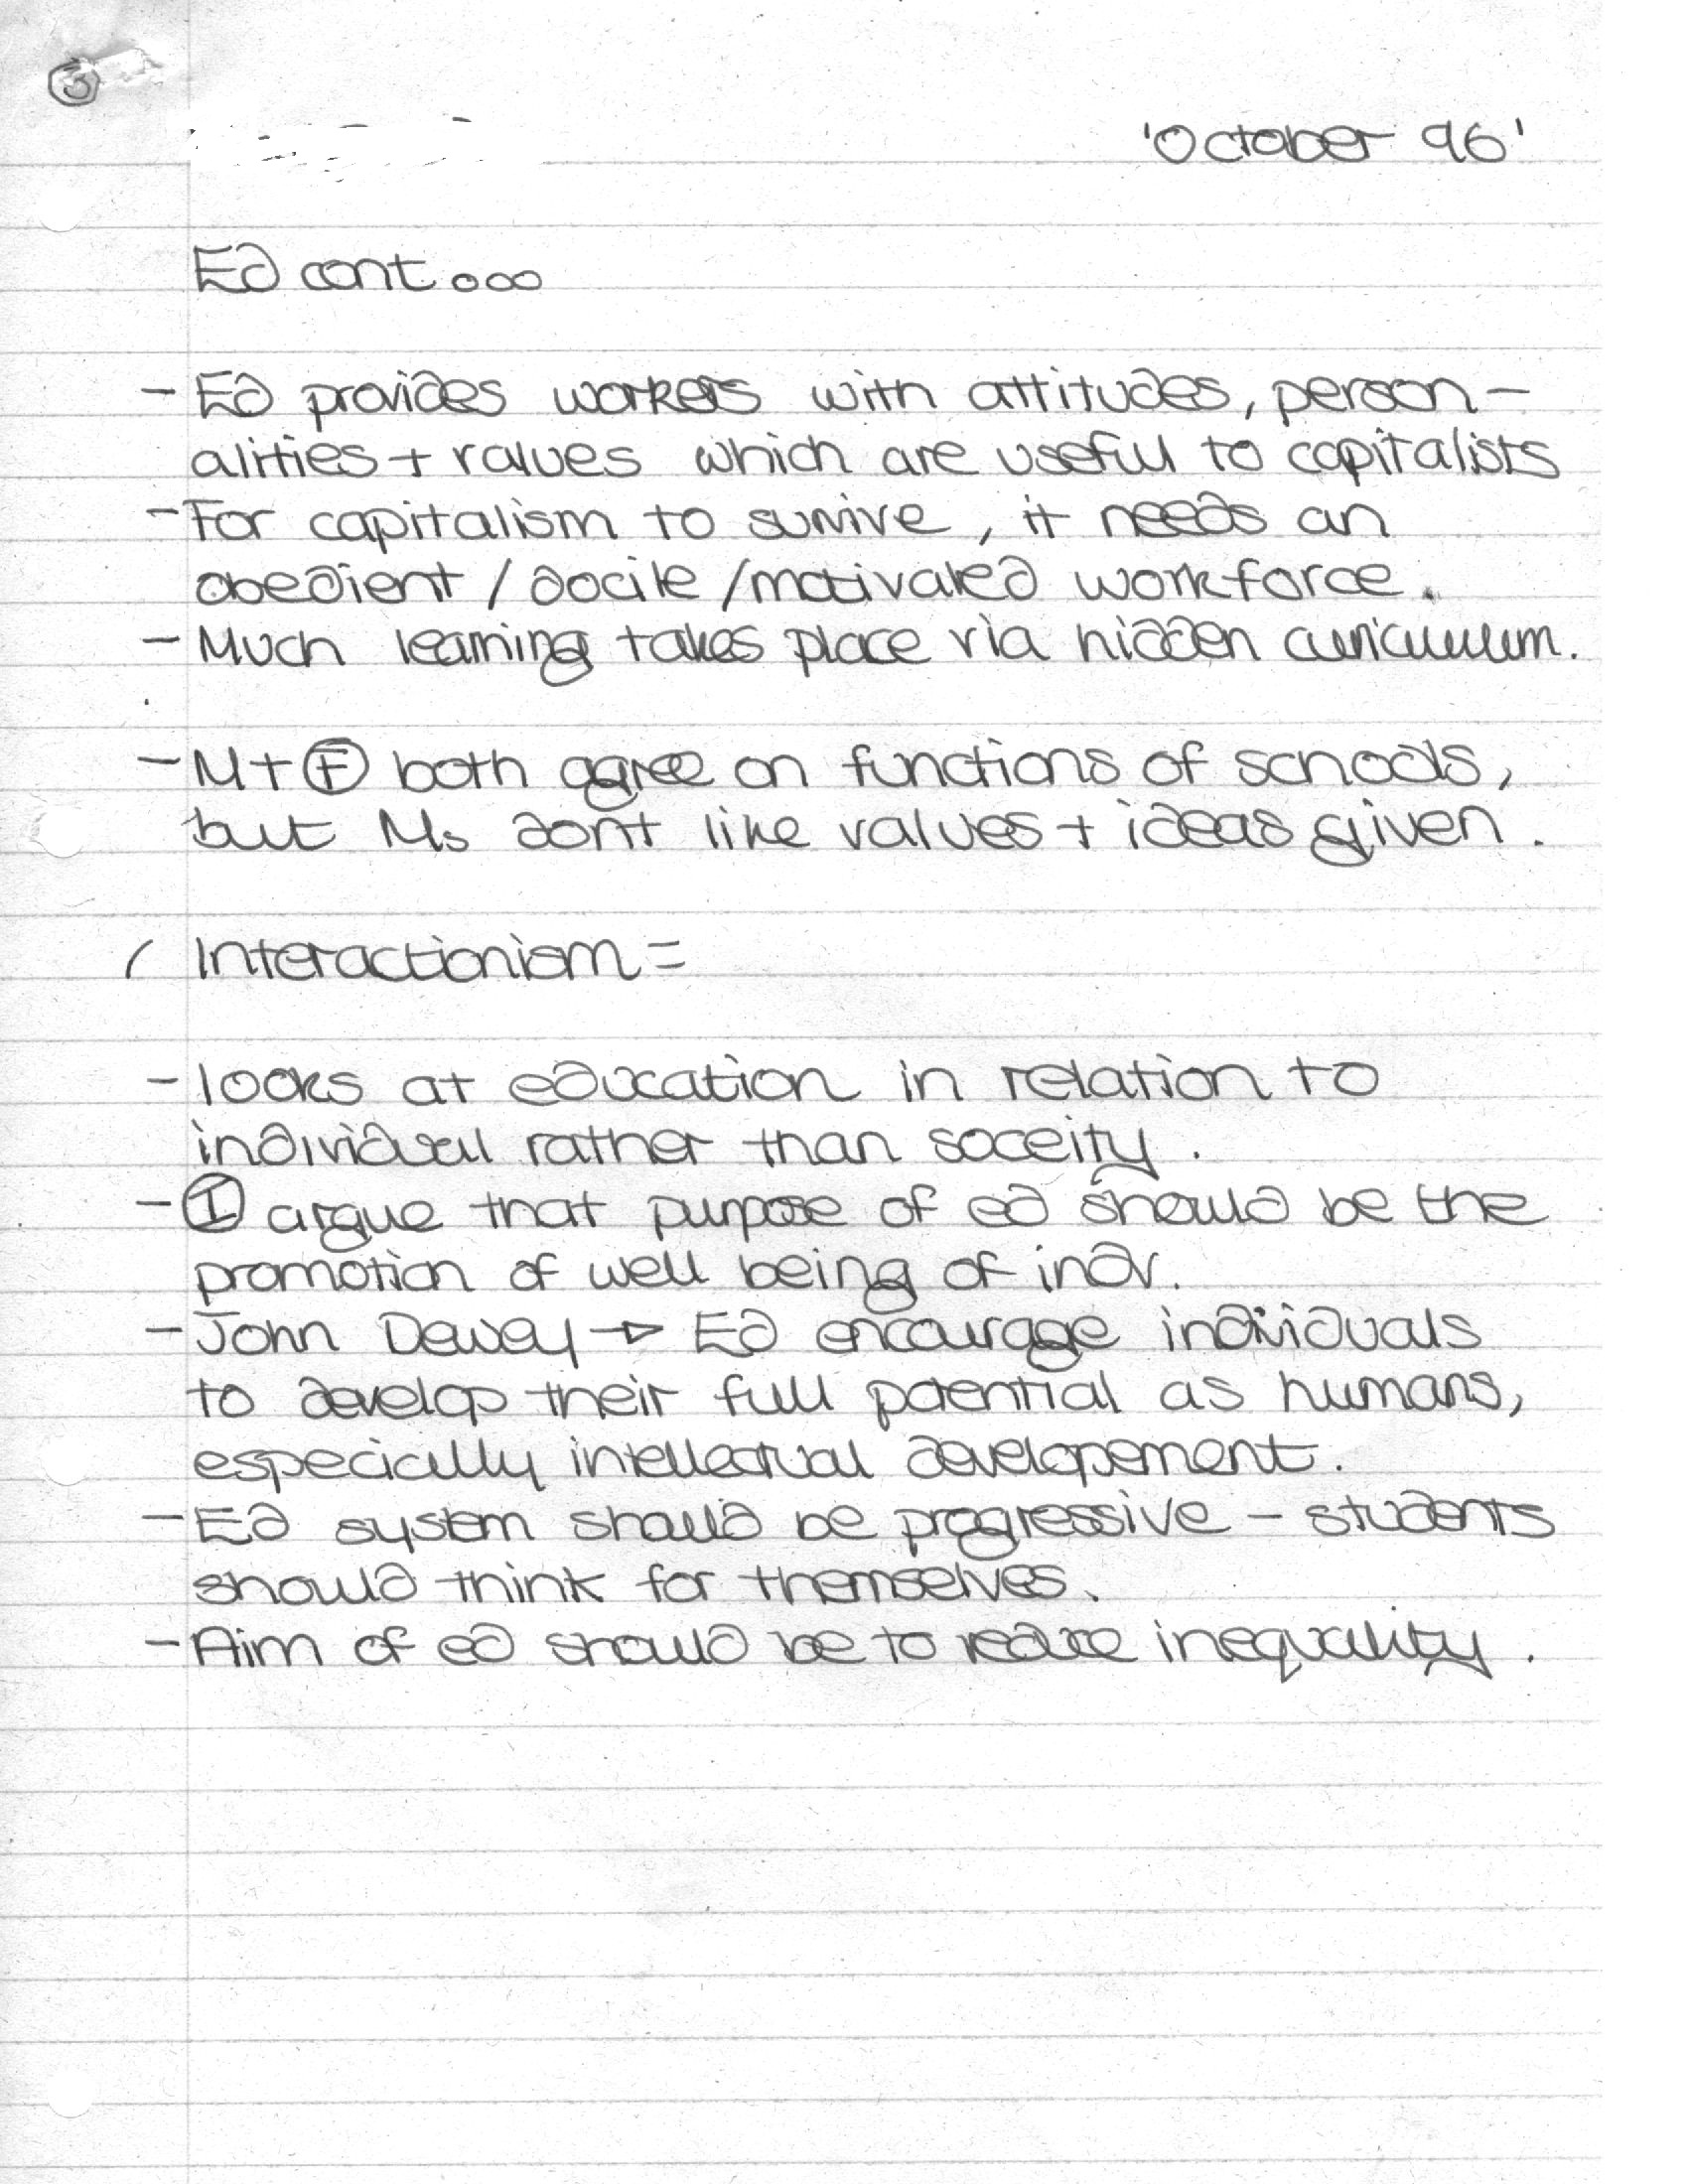 3
'October 96'
Ed cont...
- Ed provides workers with attitudes, person-
alities + values which are useful to capitalists
- For capitalism to survive, it needs an
obedient / docile / motivated workforce.
- Much learning takes place via hidden curiculum.
- M + F both agree on functions of schools,
but Ms dont like values + ideas given.
/ Interactionism =
- looks at education in relation to
individual rather than soceity.
- I argue that purpose of ed should be the
promotion of well being of indv.
- John Dewey → Ed encourage individuals
to develop their full potential as humans,
especially intellectual developement.
- Ed system should be progressive - students
should think for themselves.
- Aim of ed should be to reduce inequality.